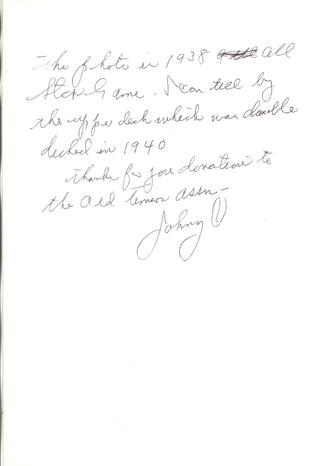 The photo is 1938 all
Star Game. I can tell by
the upper deck which was double
decked in 1940
Thanks for your donation to
the Old Timers assn-
Johnny V